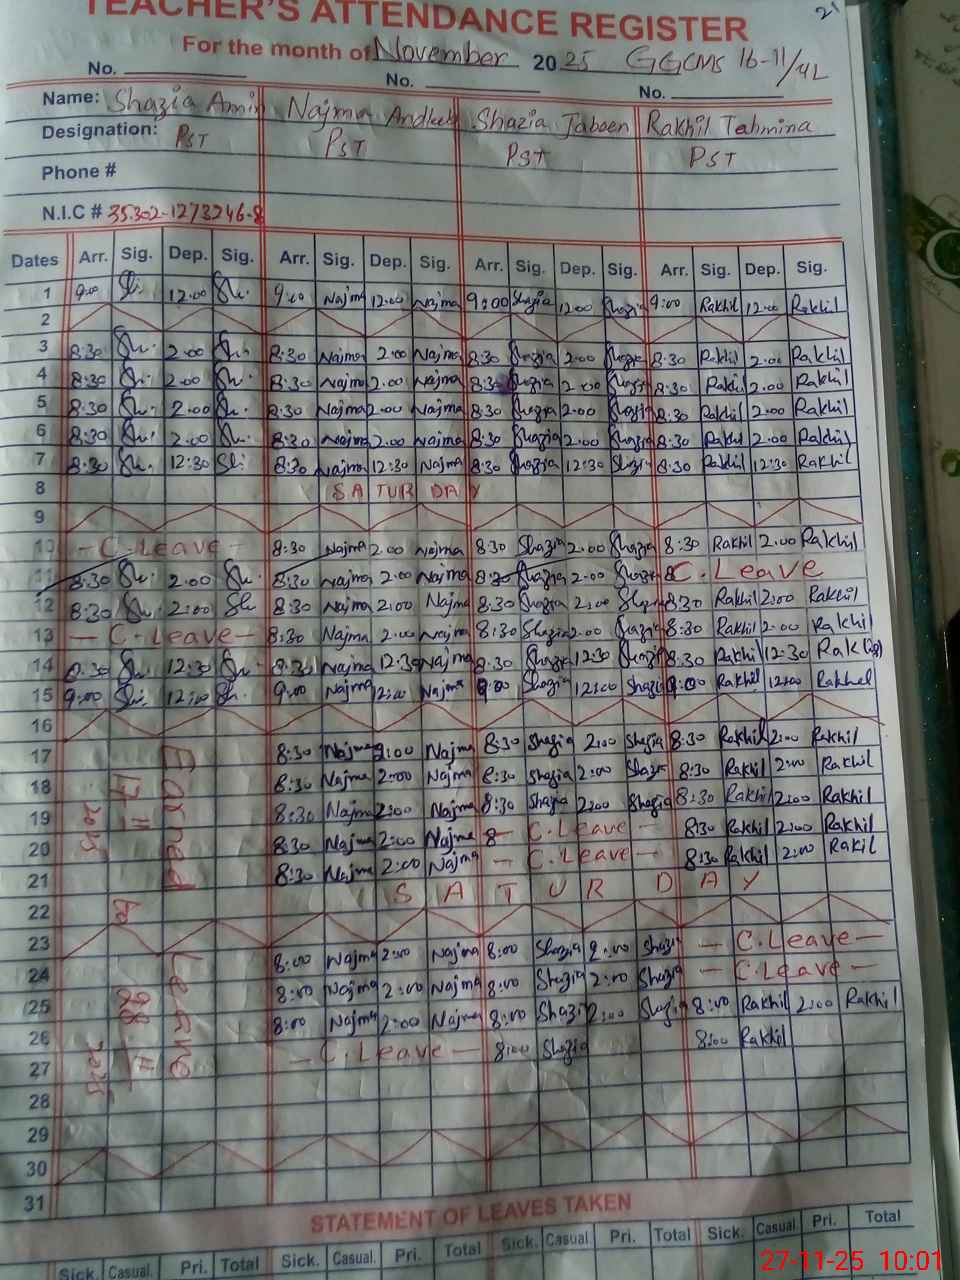 TEACHER'S ATTENDANCE REGISTER
21
For the month of November 2025 GGCMS 16-11/4L
No. No. No.
Name: Shazia Amin Najma Andleeb Shazia Jabeen Rakhil Tahmina
Designation: PST PST PST PST
Phone #
N.I.C # 35302-1273246-8
Dates Arr. Sig. Dep. Sig. Arr. Sig. Dep. Sig. Arr. Sig. Dep. Sig. Arr. Sig. Dep. Sig.
1 9:00 Sh. 12:00 Sh. 9:00 Najma 12:00 Najma 9:00 Shazia 12:00 Shazia 9:00 Rakhil 12:00 Rakhil
2
3 8:30 Sh. 2:00 Sh. 8:30 Najma 2:00 Najma 8:30 Shazia 2:00 Shazia 8:30 Rakhil 2:00 Rakhil
4 8:30 Sh. 2:00 Sh. 8:30 Najma 2:00 Najma 8:30 Shazia 2:00 Shazia 8:30 Rakhil 2:00 Rakhil
5 8:30 Sh. 2:00 Sh. 8:30 Najma 2:00 Najma 8:30 Shazia 2:00 Shazia 8:30 Rakhil 2:00 Rakhil
6 8:30 Sh. 2:00 Sh. 8:30 Najma 2:00 Najma 8:30 Shazia 2:00 Shazia 8:30 Rakhil 2:00 Rakhil
7 8:30 Sh. 12:30 Sh. 8:30 Najma 12:30 Najma 8:30 Shazia 12:30 Shazia 8:30 Rakhil 12:30 Rakhil
8 SATURDAY
9
10 - C.Leave - 8:30 Najma 2:00 Najma 8:30 Shazia 2:00 Shazia 8:30 Rakhil 2:00 Rakhil
11 8:30 Sh. 2:00 Sh. 8:30 Najma 2:00 Najma 8:30 Shazia 2:00 Shazia C.Leave
12 8:30 Sh. 2:00 Sh 8:30 Najma 2:00 Najma 8:30 Shazia 2:00 Shazia 8:30 Rakhil 2:00 Rakhil
13 - C.Leave - 8:30 Najma 2:00 Najma 8:30 Shazia 2:00 Shazia 8:30 Rakhil 2:00 Rakhil
14 8:30 Sh. 12:30 Sh. 8:30 Najma 12:30 Najma 8:30 Shazia 12:30 Shazia 8:30 Rakhil 12:30 Rakhil
15 9:00 Sh. 12:00 Sh. 9:00 Najma 12:00 Najma 9:00 Shazia 12:00 Shazia 9:00 Rakhil 12:00 Rakhil
16
17 8:30 Najma 2:00 Najma 8:30 Shazia 2:00 Shazia 8:30 Rakhil 2:00 Rakhil
18 8:30 Najma 2:00 Najma 8:30 Shazia 2:00 Shazia 8:30 Rakhil 2:00 Rakhil
19 8:30 Najma 2:00 Najma 8:30 Shazia 2:00 Shazia 8:30 Rakhil 2:00 Rakhil
20 8:30 Najma 2:00 Najma 8 - C.Leave - 8:30 Rakhil 2:00 Rakhil
21 8:30 Najma 2:00 Najma - C.Leave - 8:30 Rakhil 2:00 Rakil
22 SATURDAY
23
24 8:00 Najma 2:00 Najma 8:00 Shazia 2:00 Shazia - C.Leave -
25 8:00 Najma 2:00 Najma 8:00 Shazia 2:00 Shazia - C.Leave -
26 8:00 Najma 2:00 Najma 8:00 Shazia 2:00 Shazia 8:00 Rakhil 2:00 Rakhil
27 - C.Leave - 8:00 Shazia 8:00 Rakhil
28
29
30
31
Earned Leave
17 11 2025 to 28 11 2025
STATEMENT OF LEAVES TAKEN
Sick. Casual. Pri. Total Sick. Casual. Pri. Total Sick. Casual. Pri. Total Sick. Casual. Pri. Total
27-11-25 10:01